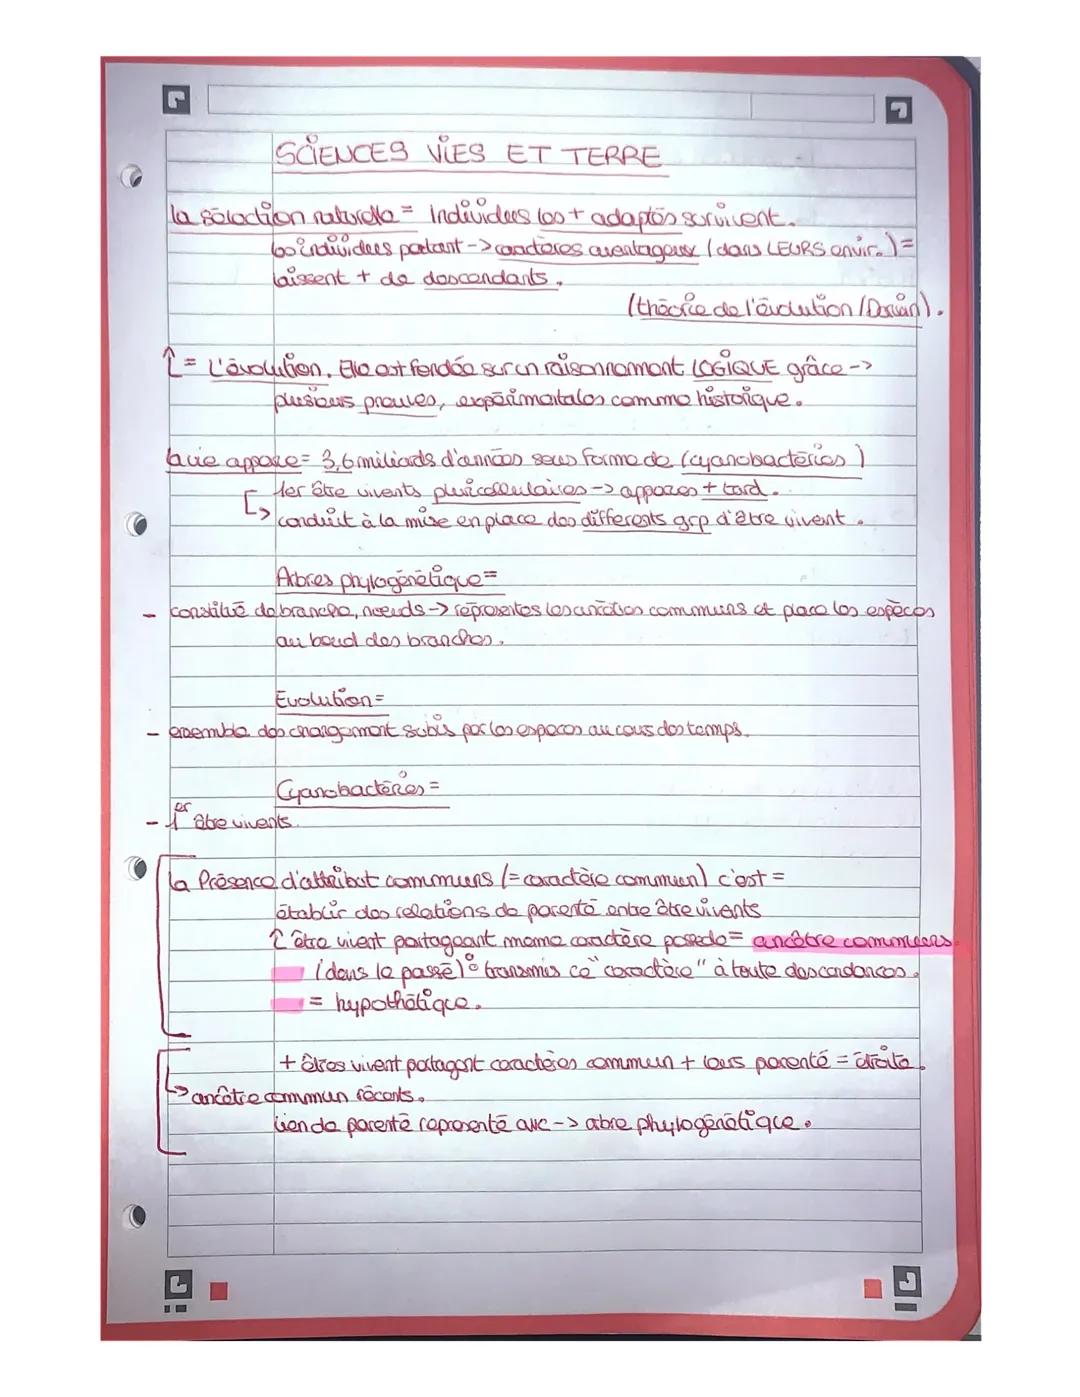 SCIENCES VIES ET TERRE
la sélection naturelle = individues les + adaptés survivent.
les individues portant -> caractères aventageux (dans LEURS envir.) =
laissent + de descendants.
(théorie de l'évolution / Darwin).
↑ = L'évolution. Elle est fondée sur un raisonnement LOGIQUE grâce ->
plusieurs preuves, expérimentales comme historique.
la vie apparue = 3,6 miliards d'années sous forme de (cyanobactéries)
1er être vivents pluricellulaires -> appares + tard.
↳ conduit à la mise en place des différents grp d'être vivent.
Arbres phylogénétique =
- constitué de branche, noeuds -> représentes les ancêtres communs et place les espèces
au boud des branches.
Evolution =
- ensemble des changement subis par les espèces au cous des temps.
Cyanobactéries =
- 1er être vivents.
la Présence d'attribut communs (= caractère commun) c'est =
établir des relations de parenté entre être vivents
↑ être vivent partageant meme caractère possede = ancêtre communs.
(dans le passé) : transmis ce "caractère" à toute descendances.
= hypothétique.
+ êtres vivent partagent caractères commun + leurs parenté = étroite.
↳ ancêtre commun récents.
lien de parenté représenté avec -> abre phylogénétique.